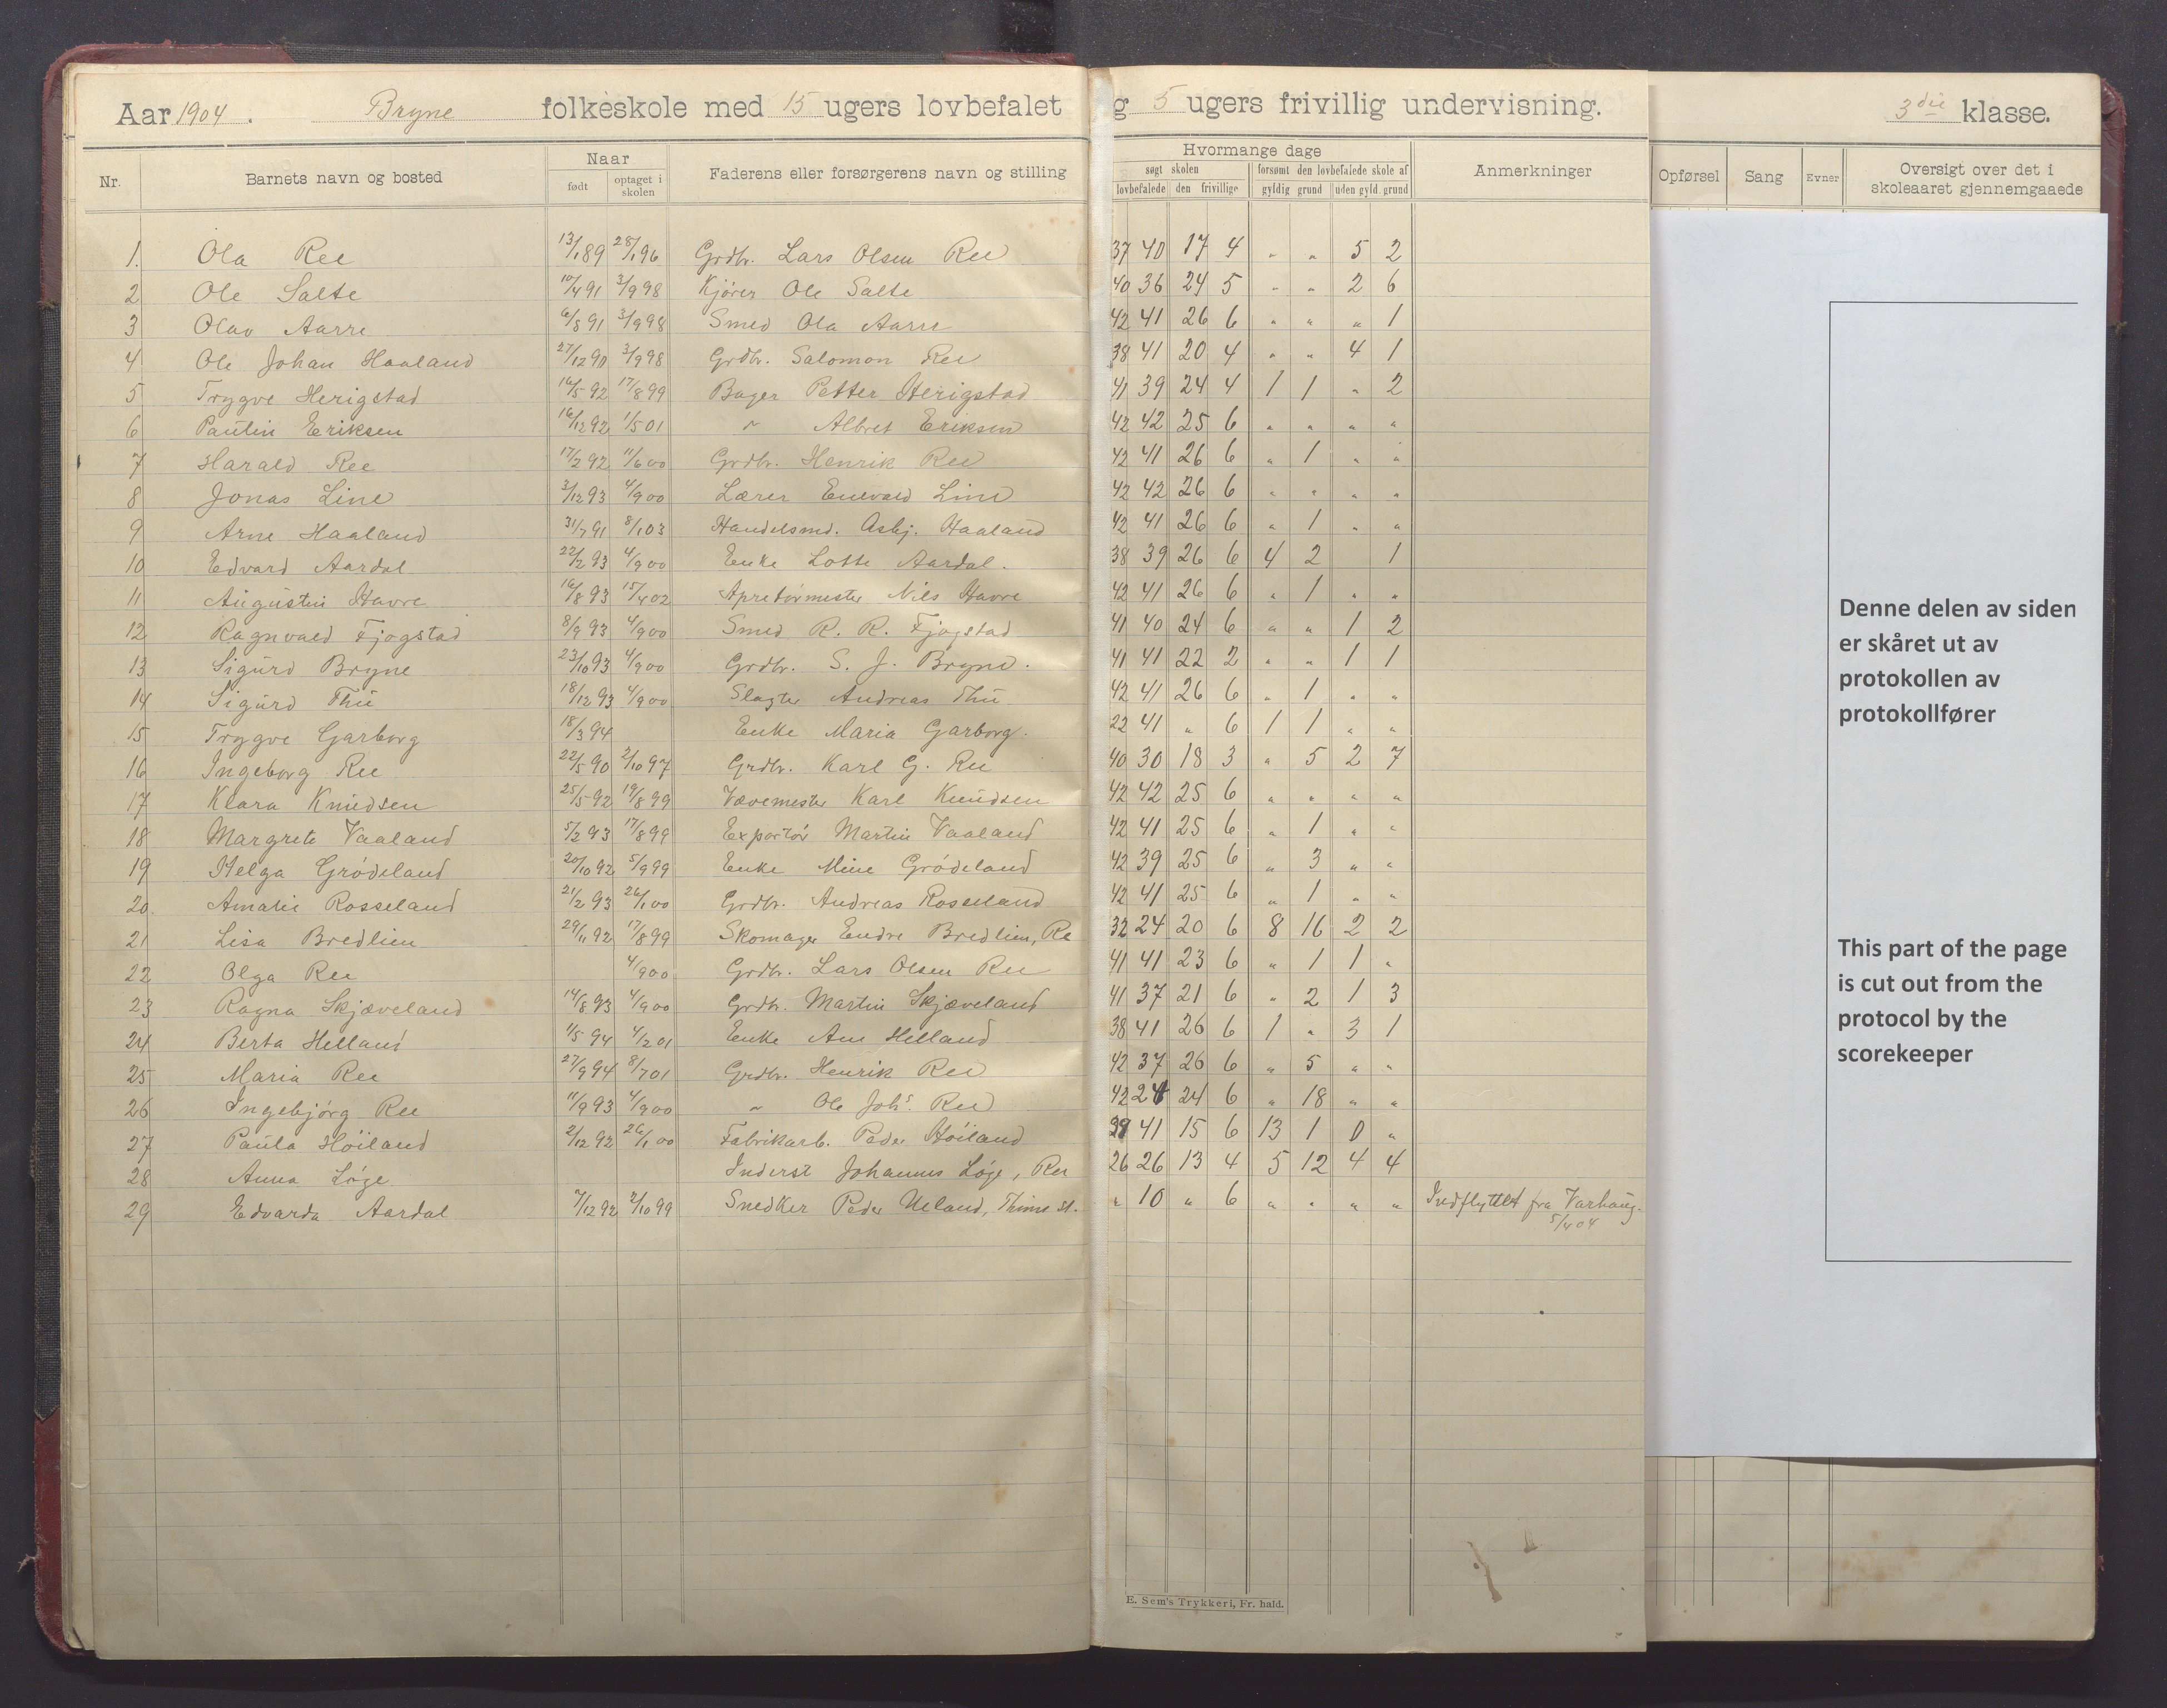 Aar 1904. Bryne folkeskole med 15 ugers lovbefalet g 5 ugers frivillig undervisning. 3die klasse.
Nr. Barnets navn og bosted Naar født optaget i skolen Faderens eller forsørgerens navn og stilling Hvormange dage søgt skolen lovbefalede den frivillige forsømt den lovbefalede skole af gyldig grund uden gyld. grund Anmerkninger Opførsel Sang Evner Oversigt over det i skoleaaret gjennemgaaede
1. Ola Ree 13/1 89 28/1 96 Grdbr. Lars Olsen Ree 37 40 17 4 " " 5 2
2 Ole Salte 10/4 91 3/9 98 Kjører Ole Salte 40 36 24 5 " " 2 6
3 Olav Aarre 6/8 91 3/9 98 Smed Ola Aarre 42 41 26 6 " " " 1
4 Ole Johan Haaland 27/12 90 3/9 98 Grdbr. Salomon Ree 38 41 20 4 " " 4 1
5 Trygve Herigstad 16/5 92 17/8 99 Bager Petter Herigstad 41 39 24 4 1 1 " 2
6 Paulin Eriksen 16/12 92 1/5 01 " Albret Eriksen 42 42 25 6 " " " "
7 Harald Ree 17/2 92 11/6 00 Grdbr. Henrik Ree 42 41 26 6 " 1 " "
8 Jonas Line 3/12 93 4/9 00 Lærer Enevald Line 42 42 26 6 " " " "
9 Arne Haaland 31/7 91 8/1 03 Handelsmd. Asbj. Haaland 42 41 26 6 " 1 " "
10 Edvard Aardal 22/2 93 4/9 00 Enke Lotte Aardal. 38 39 26 6 4 2 1
11 Augustin Havre 16/8 93 15/4 02 Apretørmester Nils Havre 42 41 26 6 " 1 " "
12 Ragnvald Fjogstad 8/9 93 4/9 00 Smed R. R. Fjogstad 41 40 24 6 " " 1 2
13 Sigurd Bryne 23/10 93 4/9 00 Grdbr. S. J. Bryne. 41 41 22 2 " " 1 1
14 Sigurd Thu 18/12 93 4/9 00 Slagter Andreas Thu 42 41 26 6 " 1 " "
15 Trygve Garborg 18/3 94 Enke Maria Garborg. 22 41 " 6 1 1 " "
16 Ingeborg Ree 22/5 90 2/10 97 Grdbr. Karl G. Ree 40 30 18 3 " 5 2 7
17 Klara Knudsen 25/5 92 19/8 99 Vævemester Karl Knudsen 42 42 25 6 " " " "
18 Margrete Vaaland 5/2 93 17/8 99 Exportør Martin Vaaland 42 41 25 6 " 1 " "
19 Helga Grødeland 20/10 92 5/9 99 Enke Mine Grødeland 42 39 25 6 " 3 " "
20 Amalie Rosseland 21/2 93 26/1 00 Grdbr. Andreas Rosseland 42 41 25 6 " 1 " "
21 Lisa Bredlien 29/11 92 17/8 99 Skomager Endre Bredlien, Re 32 24 20 6 8 16 2 2
22 Olga Ree 4/9 00 Grdbr. Lars Olsen Ree 41 41 23 6 " 1 1 "
23 Ragna Skjæveland 14/8 93 4/9 00 Grdbr. Martin Skjæveland 41 37 21 6 " 2 1 3
24 Berta Helland 1/5 94 4/2 01 Enke Ane Helland 38 41 26 6 1 " 3 1
25 Maria Ree 27/9 94 8/7 01 Grdbr. Henrik Ree 42 37 26 6 " 5 " "
26 Ingebjørg Ree 11/9 93 4/9 00 " Ole Johs. Ree 42 24 24 6 " 18 " "
27 Paula Høiland 2/12 92 26/1 00 Fabrikarb. Peder Høiland 29 41 15 6 13 1 0 "
28 Anna Løge Inderst Johannes Løge, Ree 26 26 13 4 5 12 4 4
29 Edvarda Aardal 7/12 92 2/10 99 Snedker Peder Ueland, Thime st. " 10 " 6 " " " " Indflyttet fra Varhaug.
5/4 04
E. Sem's Trykkeri, Fr. hald.
Denne delen av siden
er skåret ut av
protokollen av
protokollfører
This part of the page
is cut out from the
protocol by the
scorekeeper